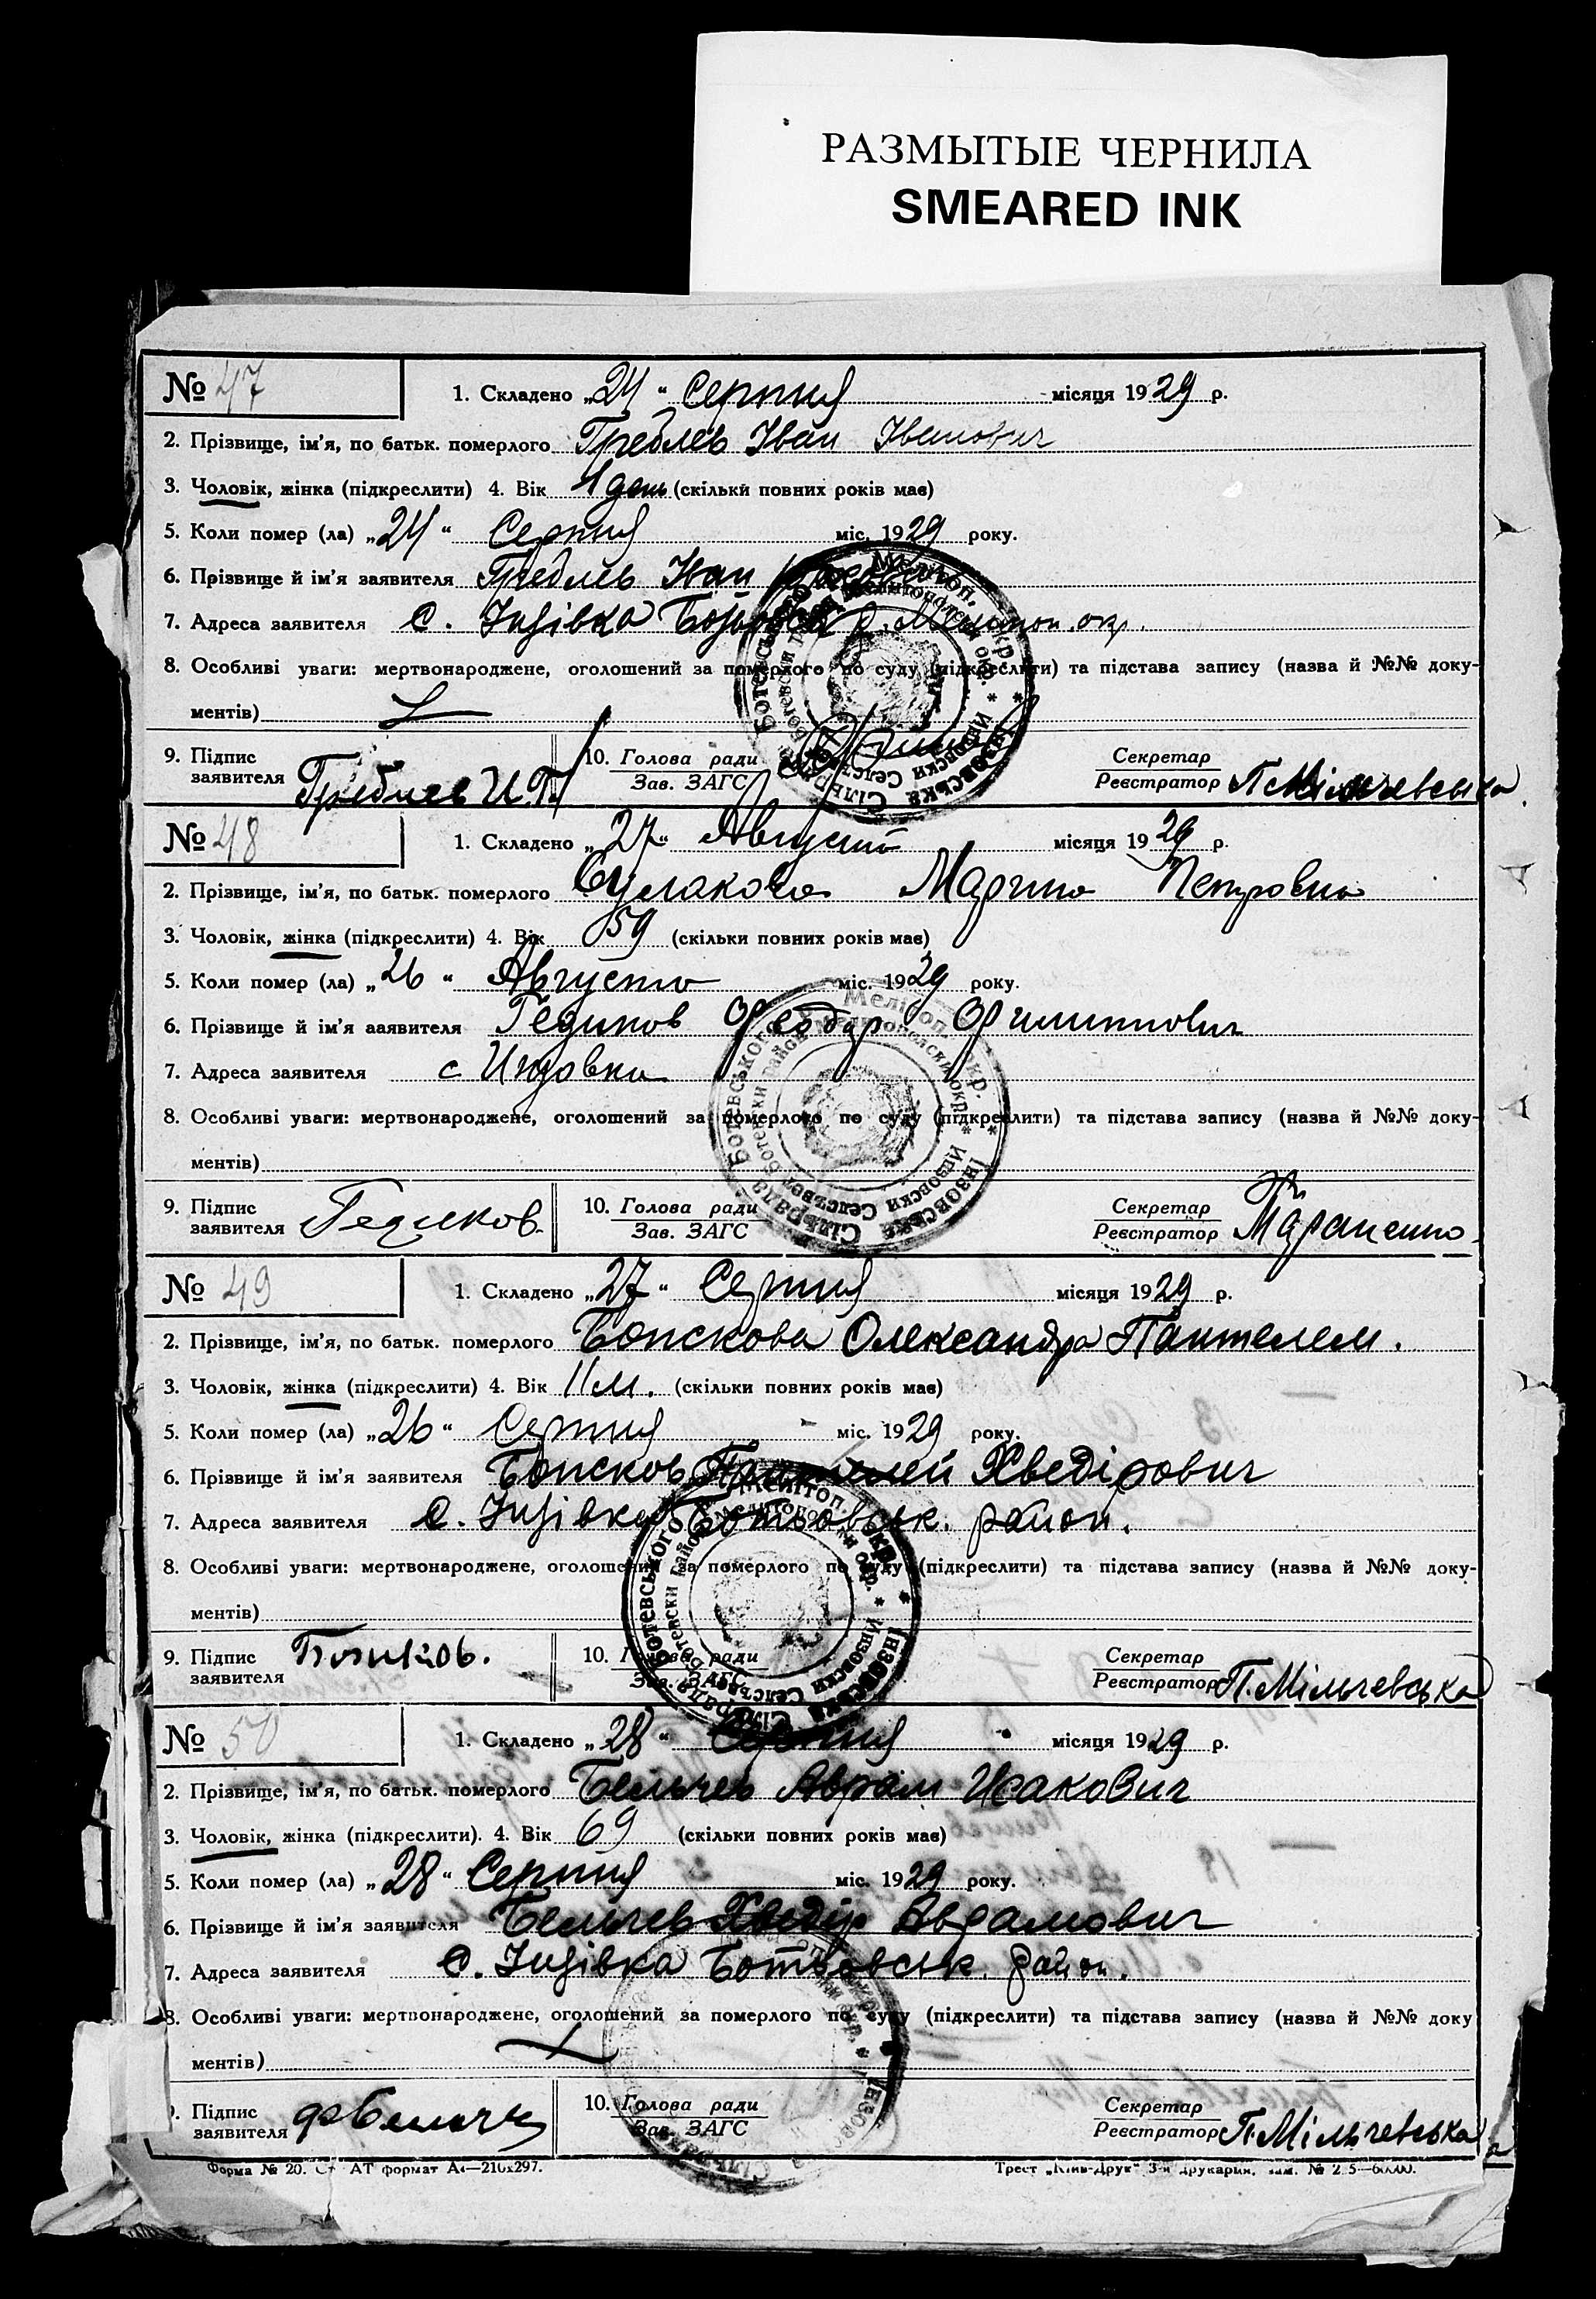 РАЗМЫТЫЕ ЧЕРНИЛА
SMEARED INK
№ 47
1. Складено „24“ Серпня місяця 1929 р.
2. Прізвище, ім'я, по батьк. померлого Греблев Іван Іванович
3. Чоловік, жінка (підкреслити) 4. Вік 1 день (скільки повних років має)
5. Коли помер (ла) „24“ Серпня міс. 1929 року.
6. Прізвище й ім'я заявителя Греблев Іван
7. Адреса заявителя С. Інзівка Мелітоп. окр.
8. Особливі уваги: мертвонароджене, оголошений за померлого по суду (підкреслити) та підстава запису (назва й №№ доку-
ментів)
9. Підпис заявителя
10. Голова ради
Зав. ЗАГС
Секретар
Реєстратор П. Мільчевська
№ 48
1. Складено „27“ Август місяця 1929 р.
2. Прізвище, ім'я, по батьк. померлого Марина Петровна
3. Чоловік, жінка (підкреслити) 4. Вік 59 (скільки повних років має)
5. Коли помер (ла) „26“ Августа міс. 1929 року.
6. Прізвище й ім'я заявителя Гедиков Феодор Филиппович
7. Адреса заявителя с Инзовка
8. Особливі уваги: мертвонароджене, оголошений за померлого по суду (підкреслити) та підстава запису (назва й №№ доку-
ментів)
9. Підпис заявителя Гедиков
10. Голова ради
Зав. ЗАГС
Секретар
Реєстратор
№ 49
1. Складено „27“ Серпня місяця 1929 р.
2. Прізвище, ім'я, по батьк. померлого Бопскова Олександра Пантелем.
3. Чоловік, жінка (підкреслити) 4. Вік 11 м. (скільки повних років має)
5. Коли помер (ла) „26“ Серпня міс. 1929 року.
6. Прізвище й ім'я заявителя Хведірович
7. Адреса заявителя С. Інзівка Ботьовськ. район.
8. Особливі уваги: мертвонароджене, оголошений за померлого по суду (підкреслити) та підстава запису (назва й №№ доку-
ментів)
9. Підпис заявителя
10. Голова ради
Зав. ЗАГС
Секретар
Реєстратор П. Мільчевська
№ 50
1. Складено „28“ Серпня місяця 1929 р.
2. Прізвище, ім'я, по батьк. померлого Бельчев Аврам Исакович
3. Чоловік, жінка (підкреслити). 4. Вік 69 (скільки повних років має)
5. Коли помер (ла) „28“ Серпня міс. 1929 року.
6. Прізвище й ім'я заявителя Бельчев Хведір Аврамович
7. Адреса заявителя С. Інзівка Ботьовськ. район.
8. Особливі уваги: мертвонароджене, оголошений за померлого по суду (підкреслити) та підстава запису (назва й №№ доку
ментів)
9. Підпис заявителя
10. Голова ради
Зав. ЗАГС
Секретар
Реєстратор П. Мільчевська
Форма № 20. АТ формат А4—210х297.
Трест „Київ-Друк“ 3-я друкарня.